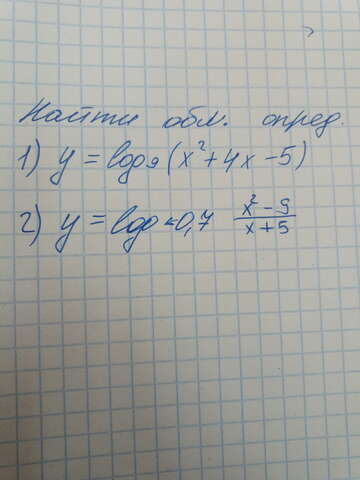 Найти обл. опред.
1) y = log₉ (x² + 4x - 5)
2) y = log 0,7 (x² - 9)/(x + 5)